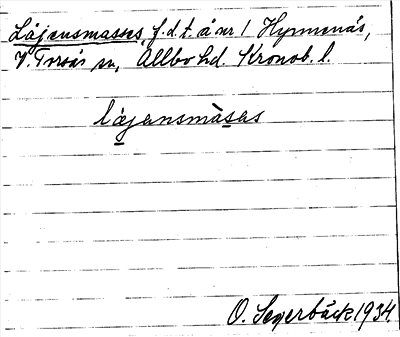 Läjensmasses, f.d.t. å nr 1 Hynnenäs,
V. Torsås sn, Allbo hd. Kronob. l.
läjensmàsas
O. Segerbäck 1934.